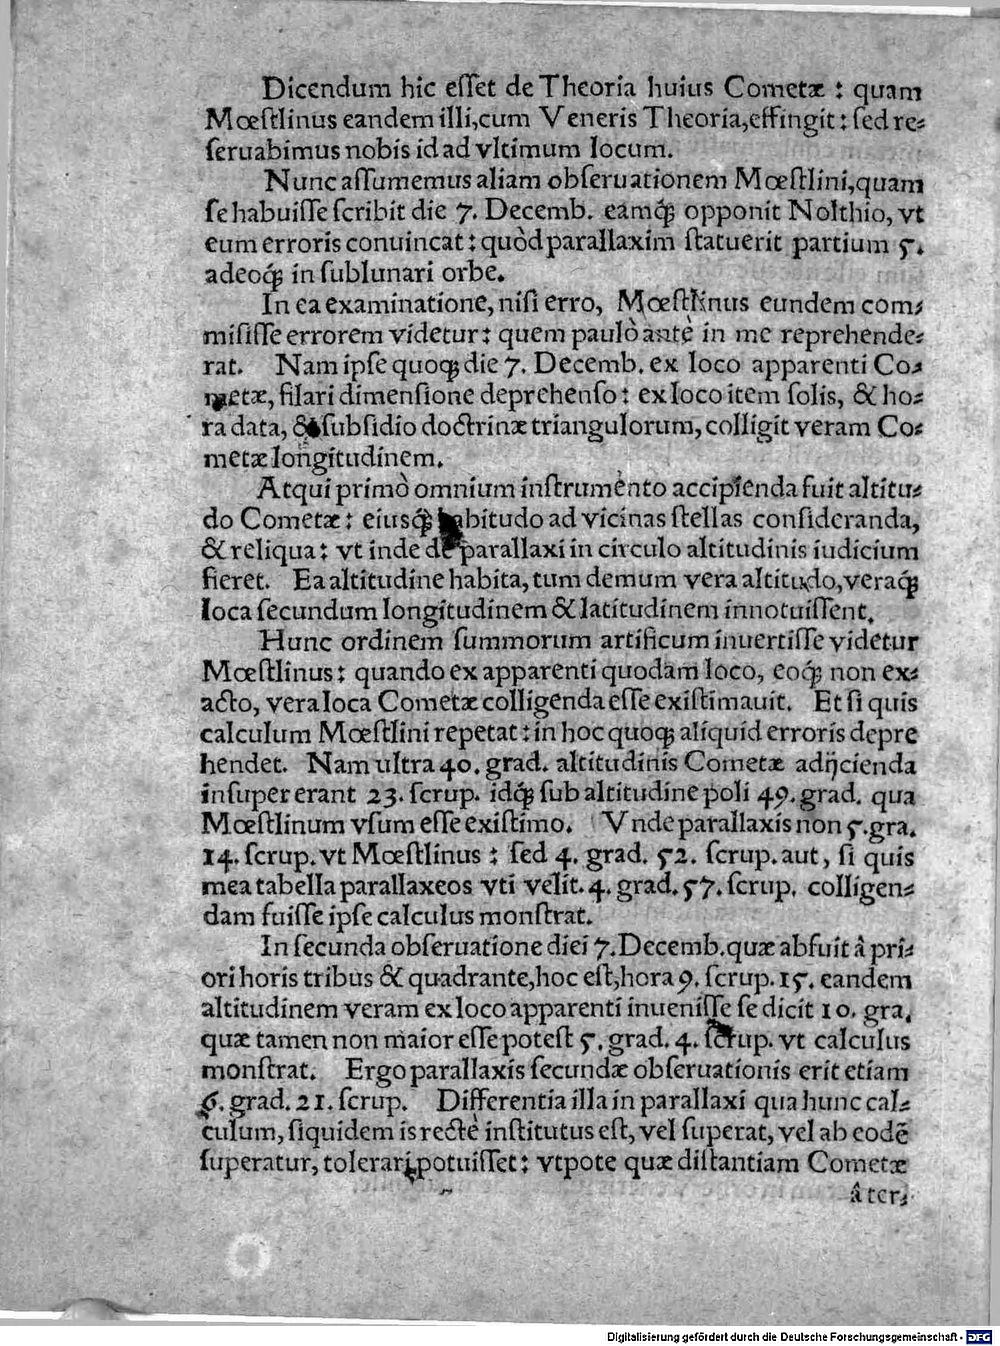 Dicendum hic eſſet de Theoria huius Cometæ : quam
Mœſtlinus eandem illi,cum Veneris Theoria,effingit : ſed re⸗
ſeruabimus nobis id ad vltimum locum.
Nunc aſſumemus aliam obſeruationem Mœſtlini,quam
ſe habuiſſe ſcribit die 7. Decemb. eamq́; opponit Nolthio, vt
eum erroris conuincat : quòd parallaxim ſtatuerit partium 5.
adeoq́; in ſublunari orbe.
In ea examinatione, niſi erro, Mœſtlinus eundem com⸗
miſiſſe errorem videtur : quem paulò antè in me reprehende⸗
rat. Nam ipſe quoq; die 7. Decemb. ex loco apparenti Co⸗
metæ, filari dimenſione deprehenſo : ex loco item ſolis, & ho⸗
ra data, & ſubſidio doctrinæ triangulorum, colligit veram Co⸗
metæ longitudinem.
Atqui primò omnium inſtrumento accipienda fuit altitu⸗
do Cometæ : eiusq́; habitudo ad vicinas ſtellas conſideranda,
& reliqua : vt inde de parallaxi in circulo altitudinis iudicium
fieret. Ea altitudine habita, tum demum vera altitudo, veraq́;
loca ſecundum longitudinem & latitudinem innotuiſſent.
Hunc ordinem ſummorum artificum inuertiſſe videtur
Mœſtlinus : quando ex apparenti quodam loco, eoq́; non ex⸗
acto, vera loca Cometæ colligenda eſſe exiſtimauit. Et ſi quis
calculum Mœſtlini repetat : in hoc quoq; aliquid erroris depre
hendet. Nam ultra 40. grad. altitudinis Cometæ adijcienda
inſuper erant 23. ſcrup. idq́; ſub altitudine poli 49. grad. qua
Mœſtlinum vſum eſſe exiſtimo. Vnde parallaxis non 5.gra.
14. ſcrup. vt Mœſtlinus : ſed 4. grad. 52. ſcrup. aut, ſi quis
mea tabella parallaxeos vti velit. 4. grad. 57. ſcrup. colligen⸗
dam fuiſſe ipſe calculus monſtrat.
In ſecunda obſeruatione diei 7.Decemb.quæ abfuit â pri⸗
ori horis tribus & quadrante,hoc eſt,hora 9. ſcrup. 15. eandem
altitudinem veram ex loco apparenti inueniſſe ſe dicit 10. gra.
quæ tamen non maior eſſe poteſt 5. grad. 4. ſcrup. vt calculus
monſtrat. Ergo parallaxis ſecundæ obſeruationis erit etiam
6. grad. 21. ſcrup. Differentia illa in parallaxi qua hunc cal⸗
culum, ſiquidem is rectè inſtitutus eſt, vel ſuperat, vel ab eodẽ
ſuperatur, tolerari potuiſſet : vtpote quæ diſtantiam Cometæ
â ter⸗
Digitalisierung gefördert durch die Deutsche Forschungsgemeinschaft - DFG